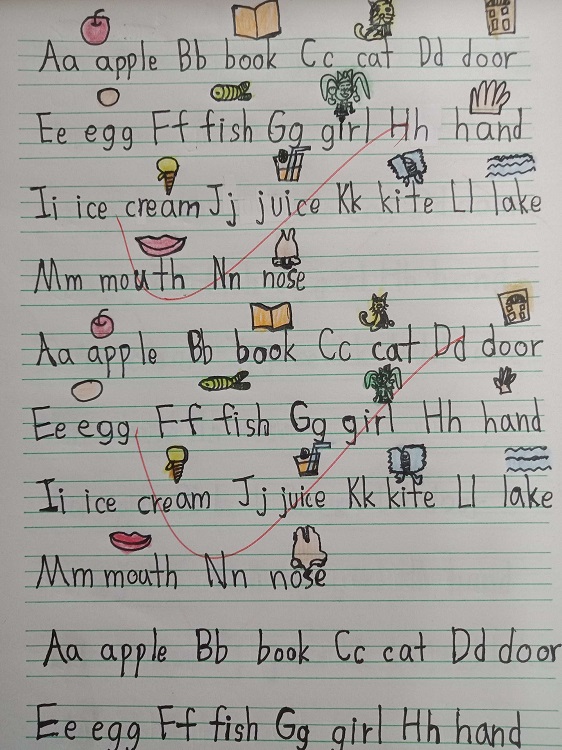 Aa apple Bb book Cc cat Dd door
Ee egg Ff fish Gg girl Hh hand
Ii ice cream Jj juice Kk kite Ll lake
Mm mouth Nn nose
Aa apple Bb book Cc cat Dd door
Ee egg Ff fish Gg girl Hh hand
Ii ice cream Jj juice Kk kite Ll lake
Mm mouth Nn nose
Aa apple Bb book Cc cat Dd door
Ee egg Ff fish Gg girl Hh hand